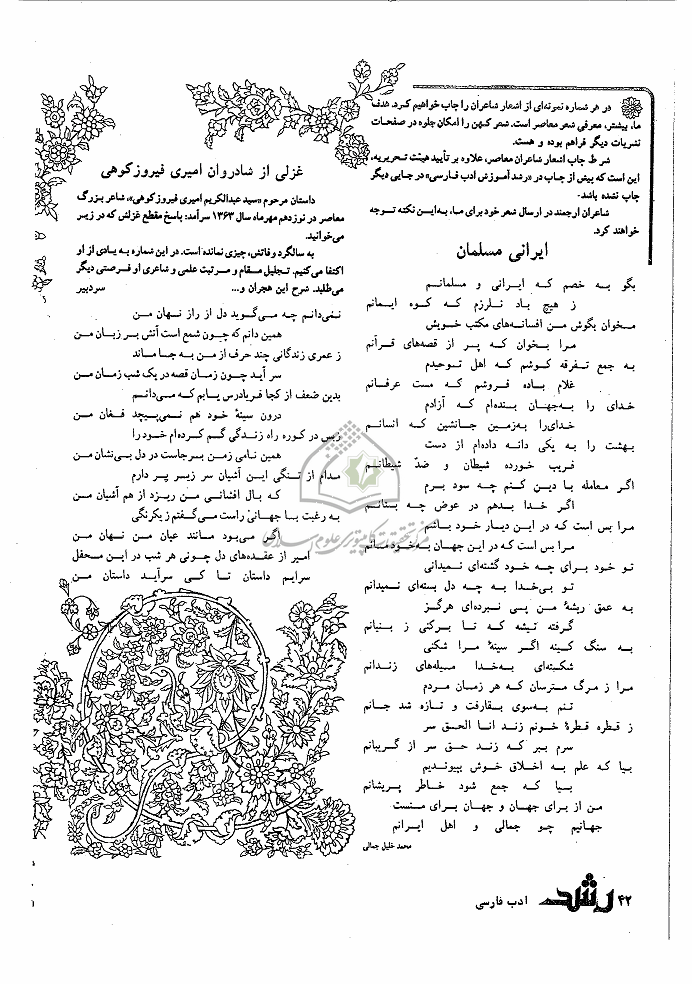 در هر شماره نمونه‌ای از اشعار شاعران را چاپ خواهیم کرد. هدف
ما، بیشتر، معرفی شعر معاصر است. شعر کهن را امکان جلوه در صفحات
نشریات دیگر فراهم بوده و هست.
شرط چاپ اشعار شاعران معاصر، علاوه بر تأیید هیئت تحریریه،
این است که پیش از چاپ در «رشد آموزش ادب فارسی» در جایی دیگر
چاپ نشده باشد.
شاعران ارجمند در ارسال شعر خود برای ما، به‌این نکته توجه
خواهند کرد.
ایرانی مسلمان
بگو به خصم که ایرانی و مسلمانم
ز هیچ باد نلرزم که کوه ایمانم
مخوان بگوش من افسانه‌های مکتب خویش
مرا بخوان که پر از قصه‌های قرآنم
به جمع تفرقه کوشم که اهل توحیدم
غلام باده فروشم که مست عرفانم
خدای را به‌جهان بنده‌ام که آزادم
خدای‌را به‌زمین جانشین که انسانم
بهشت را به یکی دانه داده‌ام از دست
فریب خورده شیطان و ضدّ شیطانم
اگر معامله با دین کنم چه سود برم
اگر خدا بدهم در عوض چه بستانم
مرا بس است که در این دیار خود باشم
مرا بس است که در این جهان به‌خود مانم
تو خود برای چه خود گشته‌ای نمیدانی
تو بی‌خدا به چه دل بسته‌ای نمیدانم
به عمق ریشهٔ من پی نبرده‌ای هرگز
گرفته تیشه که تا برکنی ز بنیانم
به سنگ کینه اگر سینهٔ مرا شکنی
شکسته‌ای به‌خدا میله‌های زندانم
مرا ز مرگ مترسان که هر زمان مردم
تنم به‌سوی بقا رفت و تازه شد جانم
ز قطره قطرهٔ خونم زند انا الحق سر
سرم ببر که زند حق سر از گریبانم
بیا که علم به اخلاق خوش پیوندیم
بیا که جمع شود خاطر پریشانم
من از برای جهان و جهان برای منست
جهانیم چو جمالی و اهل ایرانم
محمد خلیل جمالی
غزلی از شادروان امیری فیروزکوهی
داستان مرحوم «سید عبدالکریم امیری فیروزکوهی»، شاعر بزرگ
معاصر در نوزدهم مهرماه سال ۱۳۶۳ سرآمد: پاسخ مقطع غزلش که در زیر
می‌خوانید.
به سالگرد وفاتش، چیزی نمانده است. در این شماره به یادی از او
اکتفا می‌کنیم. تجلیل مقام و مرتبت علمی و شاعری او فرصتی دیگر
می‌طلبد. شرح این هجران و... سردبیر
نمی‌دانم چه می‌گوید دل از راز نهان من
همین دانم که چون شمع است آتش بر زبان من
ز عمری زندگانی چند حرف از من به جا ماند
سر آید چون زمان قصه در یک شب زمان من
بدین ضعف از کجا فریادرس یابم که می‌دانم
درون سینهٔ خود هم نمی‌پیچد فغان من
زبس در کوره راه زندگی گم کرده‌ام خود را
همین نامی زمن برجاست در دل بی‌نشان من
مدام از تنگی این آشیان سر زیر پر دارم
که بال افشانی من ریزد از هم آشیان من
به رغبت با جهانی راست می‌گفتم ز یکرنگی
اگر می‌بود مانند عیان من نهان من
امیر از عقده‌های دل چونی هر شب در این محفل
سرایم داستان تا کی سرآید داستان من
مرکز تحقیقات کامپیوتری علوم اسلامی
۴۲ رشد ادب فارسی